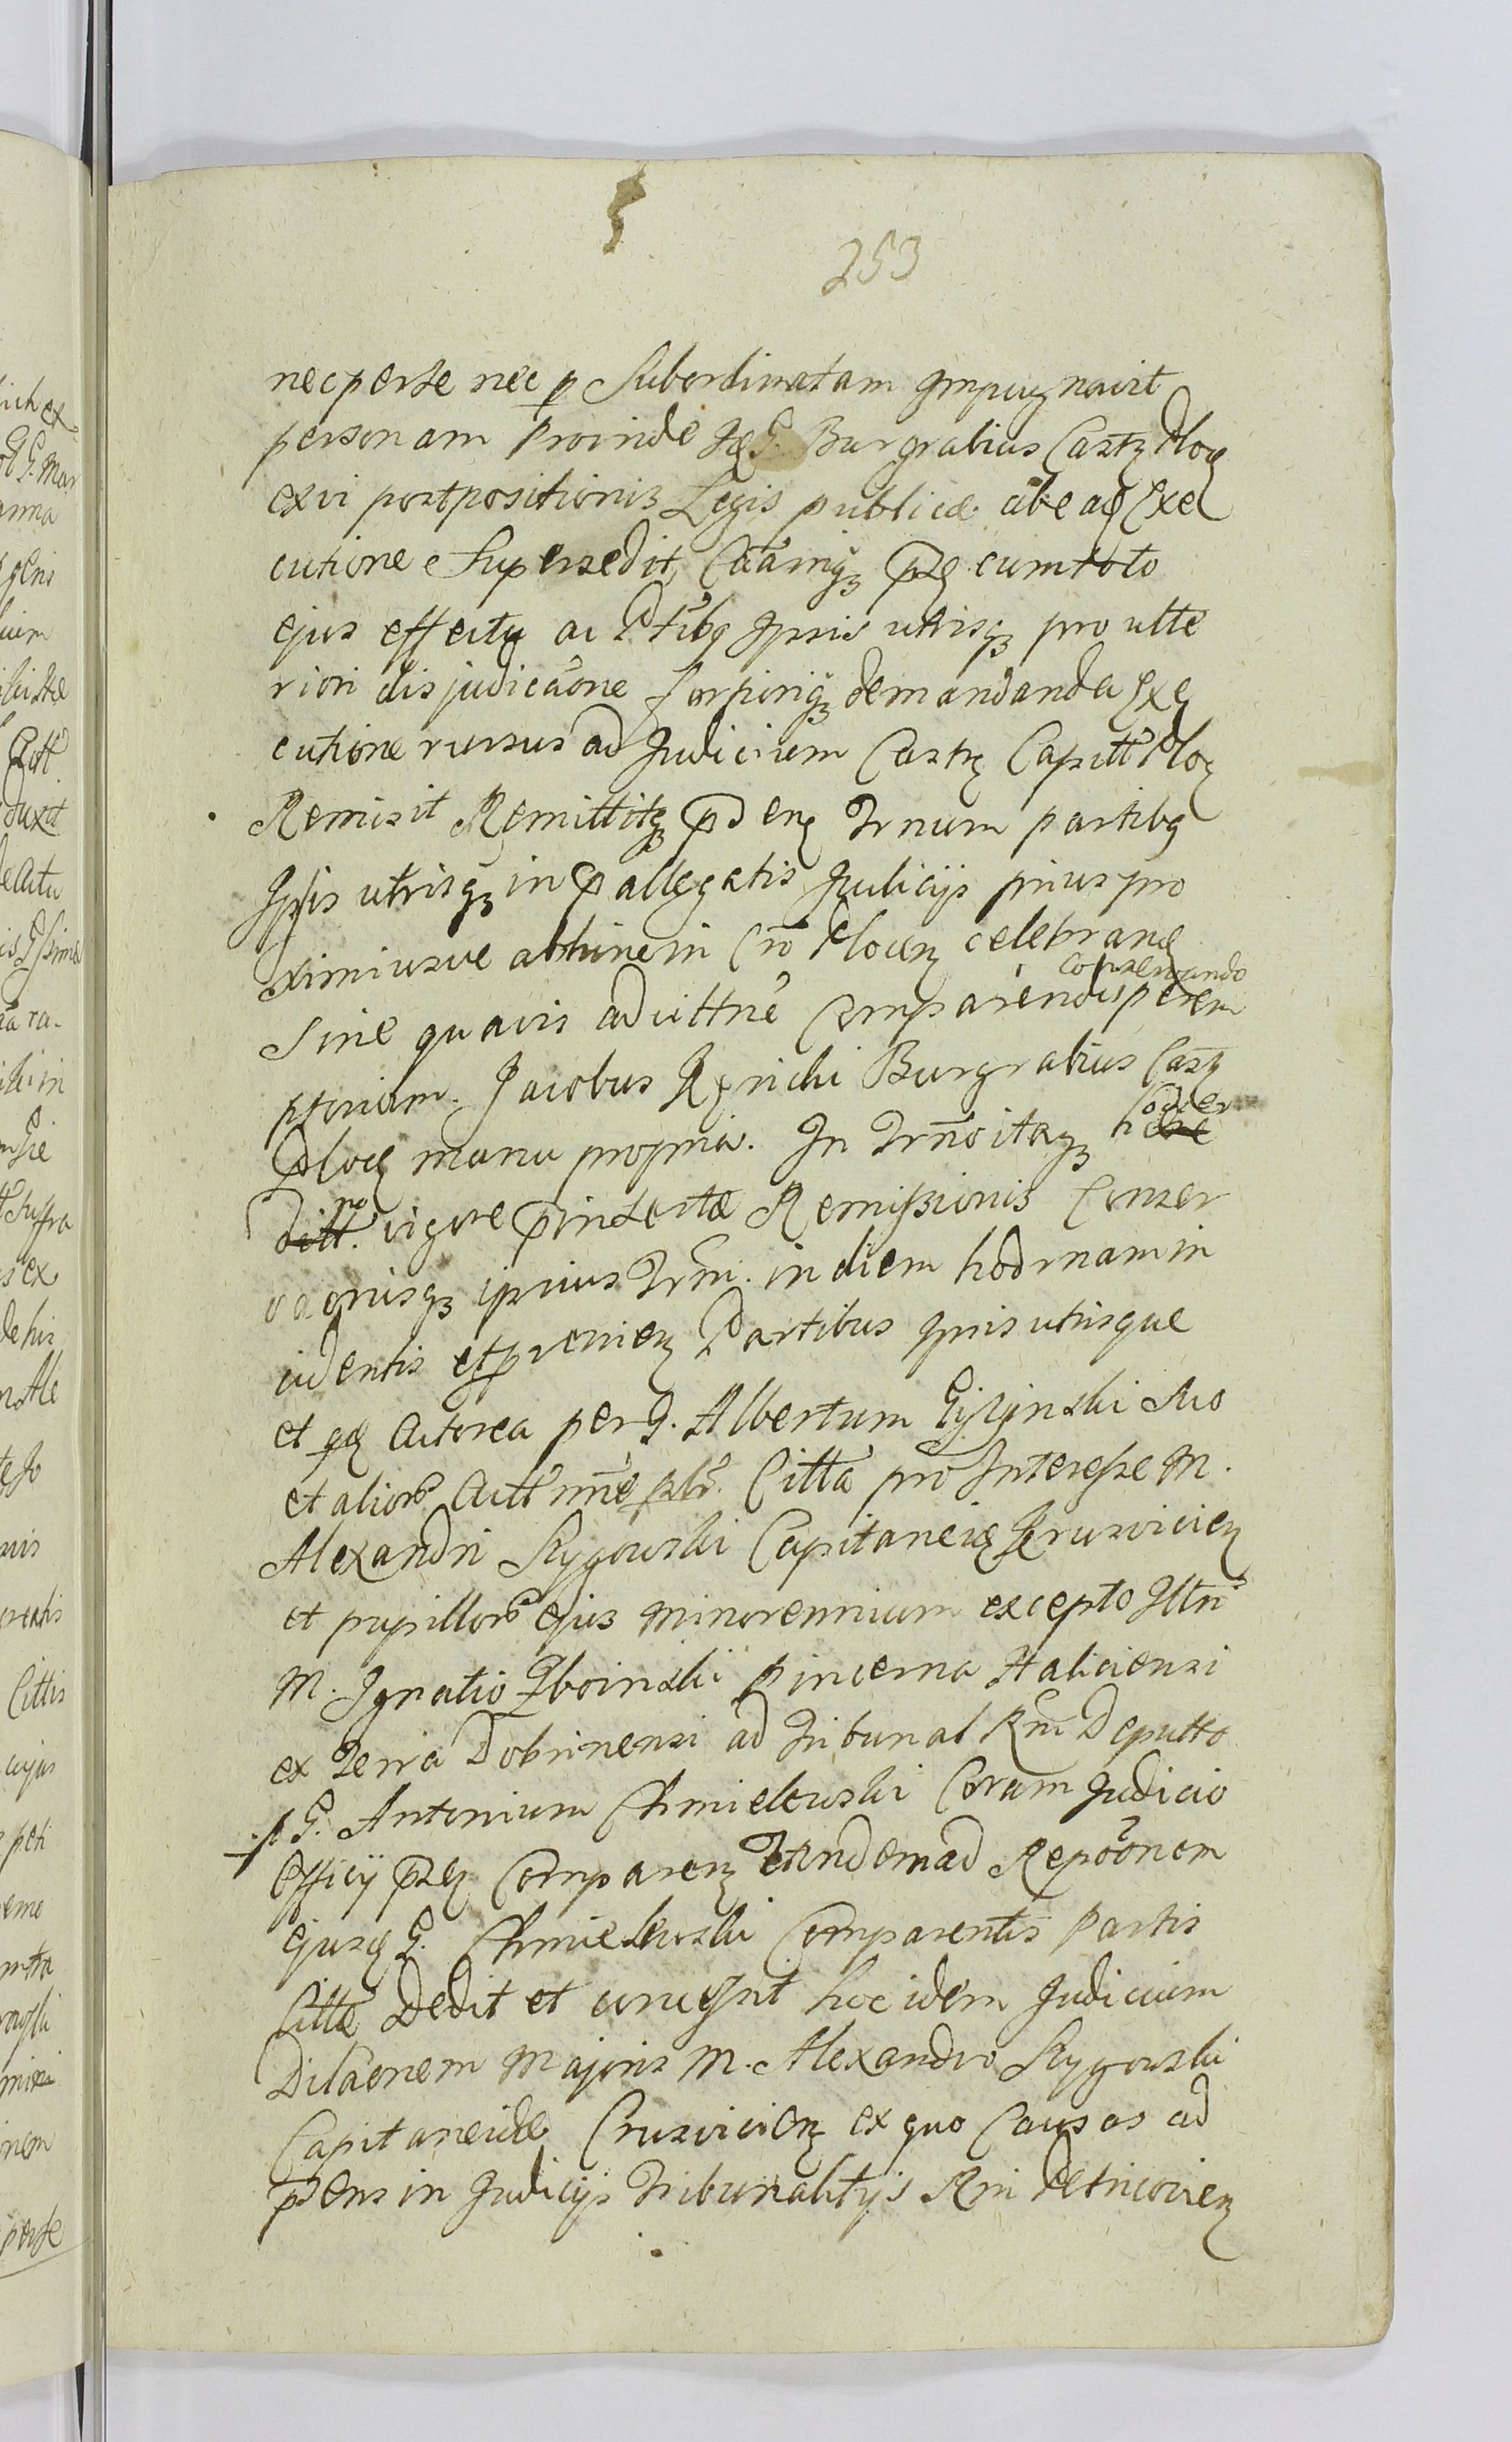 253
nec per se nec p Subordinatam Impugnavit
personam Proinde G. Burgrabius Castr Ploc
ex vi postpositionis Legis publicæ ab ea Exe
cutione Supersedit, Caamq prs cum toto
ejus effectu ac Ptibq Ipsis utrisq pro ulte
riori disjudicaone fortioriq demandanda Exe
cutione rursus ad Judicium Castr Capitt Ploc
Remisit Remittitq Trnum partibq
Ipsis utrisq in pallegatis Judicijs prius pro
ximiusve abhinc in Cro Plocen celebran
conservando
Sine quavis adcittne comparendi perem
ptorium. Jacobus Burgrabius Cast
Ploc manu propria. In Trno itaq hodier
no vigore prinsertæ Remissionis Conser
vaonisq ipsius Trni. in diem hodrnam in
cidentis et provenien Partibus Ipsis utrisque
et Actorea per G. Albertum Giżynski suo
et alior Actt nne Citta pro Interesse M.
Alexandri Rygowski Capitaneid Crusvicien
et pupillor ejus minorennium excepto Illri
M. Ignatio Zboinski Pincerna Haliciensi
ex Terra Dobrinensi ad Tribunal Rni Deputto
p G. Antonium Chmielewski Coram Judicio
Officij prs Comparen Tandem ad Repoonem
ejusd G. Chmielewski Comparentis Partis
Cittæ Dedit et concessit hoc idem Judicium
Dilaonem Majoris M. Alexandro Rygowski
Capitaneidæ Crusvicien ex quo Causas ad
prens in Judicijs Tribunalitijs Rni Petricovien